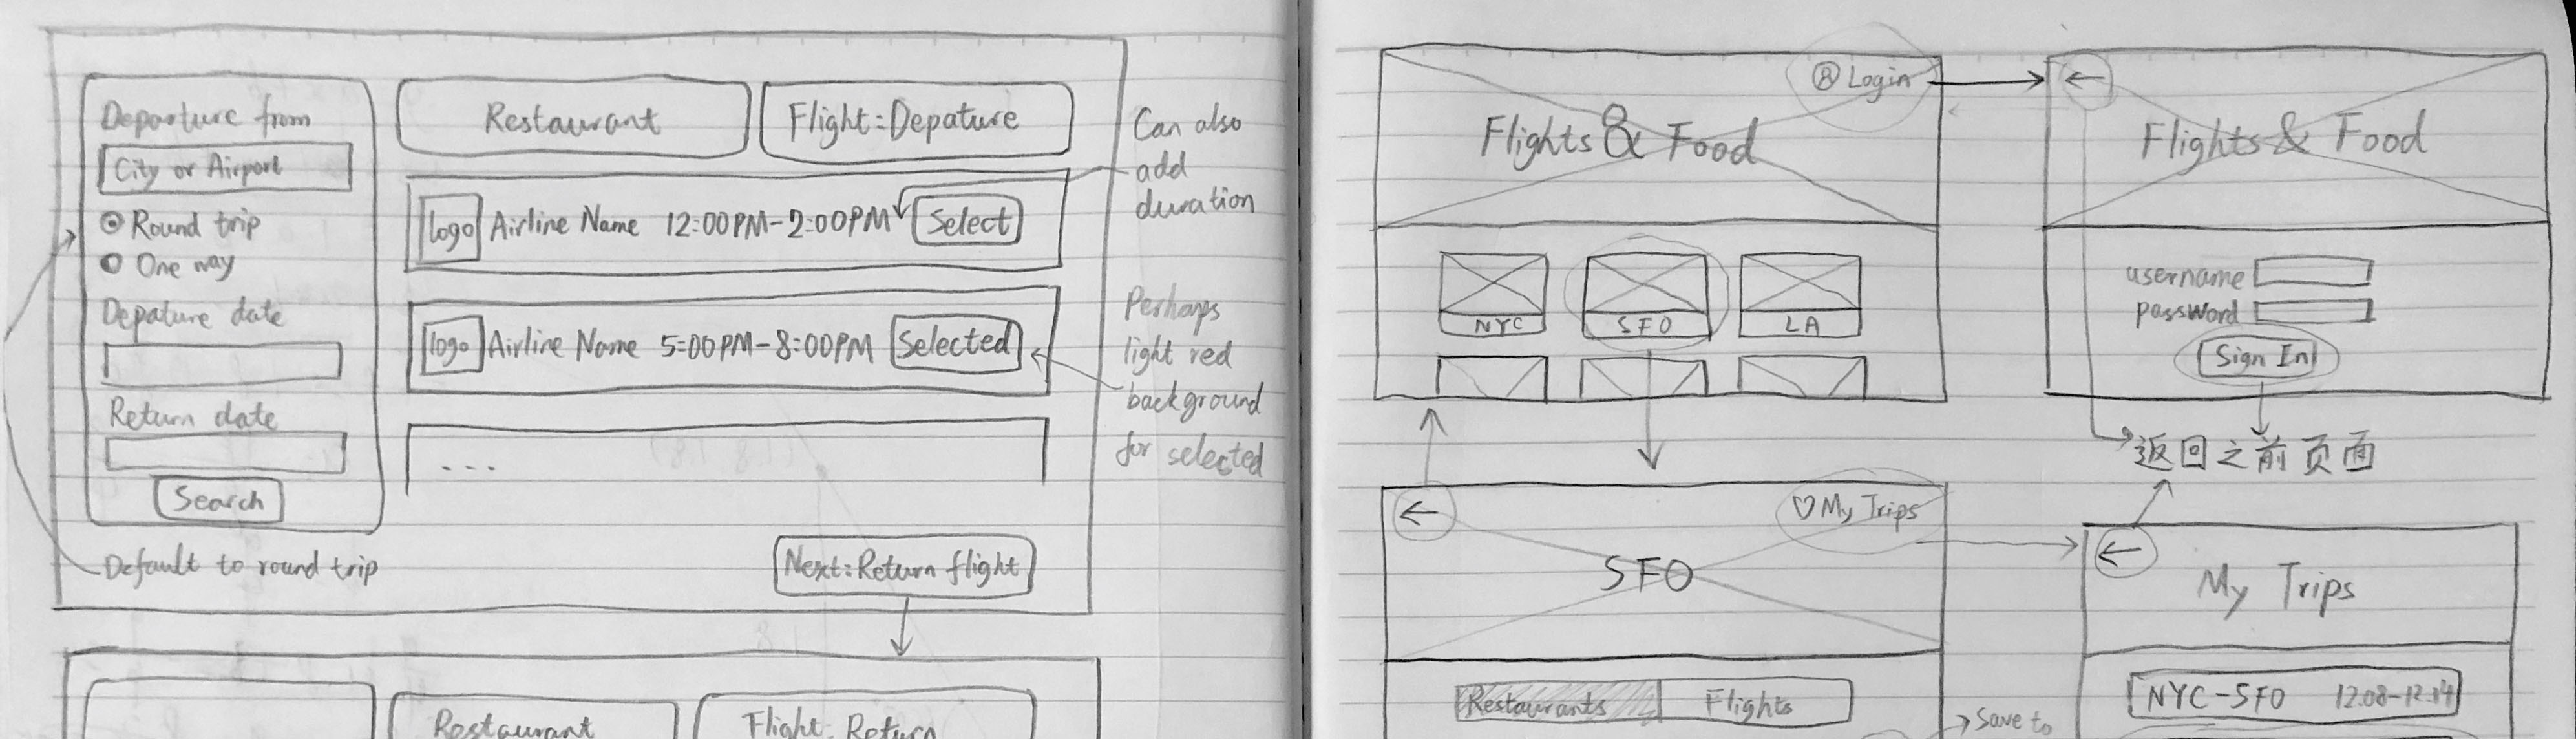 Departure from
City or Airport
Round trip
One way
Depature date
Return date
Search
Default to round trip
Restaurant
Flight:Depature
logo Airline Name 12:00PM-2:00PM Select
logo Airline Name 5:00PM-8:00PM Selected
...
Next:Return flight
Can also
add
duration
Perhaps
light red
background
for selected
Restaurant
Flight Return
Login
Flights & Food
NYC
SFO
LA
←
Flights & Food
username
password
Sign In
返回之前页面
←
♡My Trips
SFO
Restaurants
Flights
←
My Trips
NYC-SFO 12.08-12.14
Save to